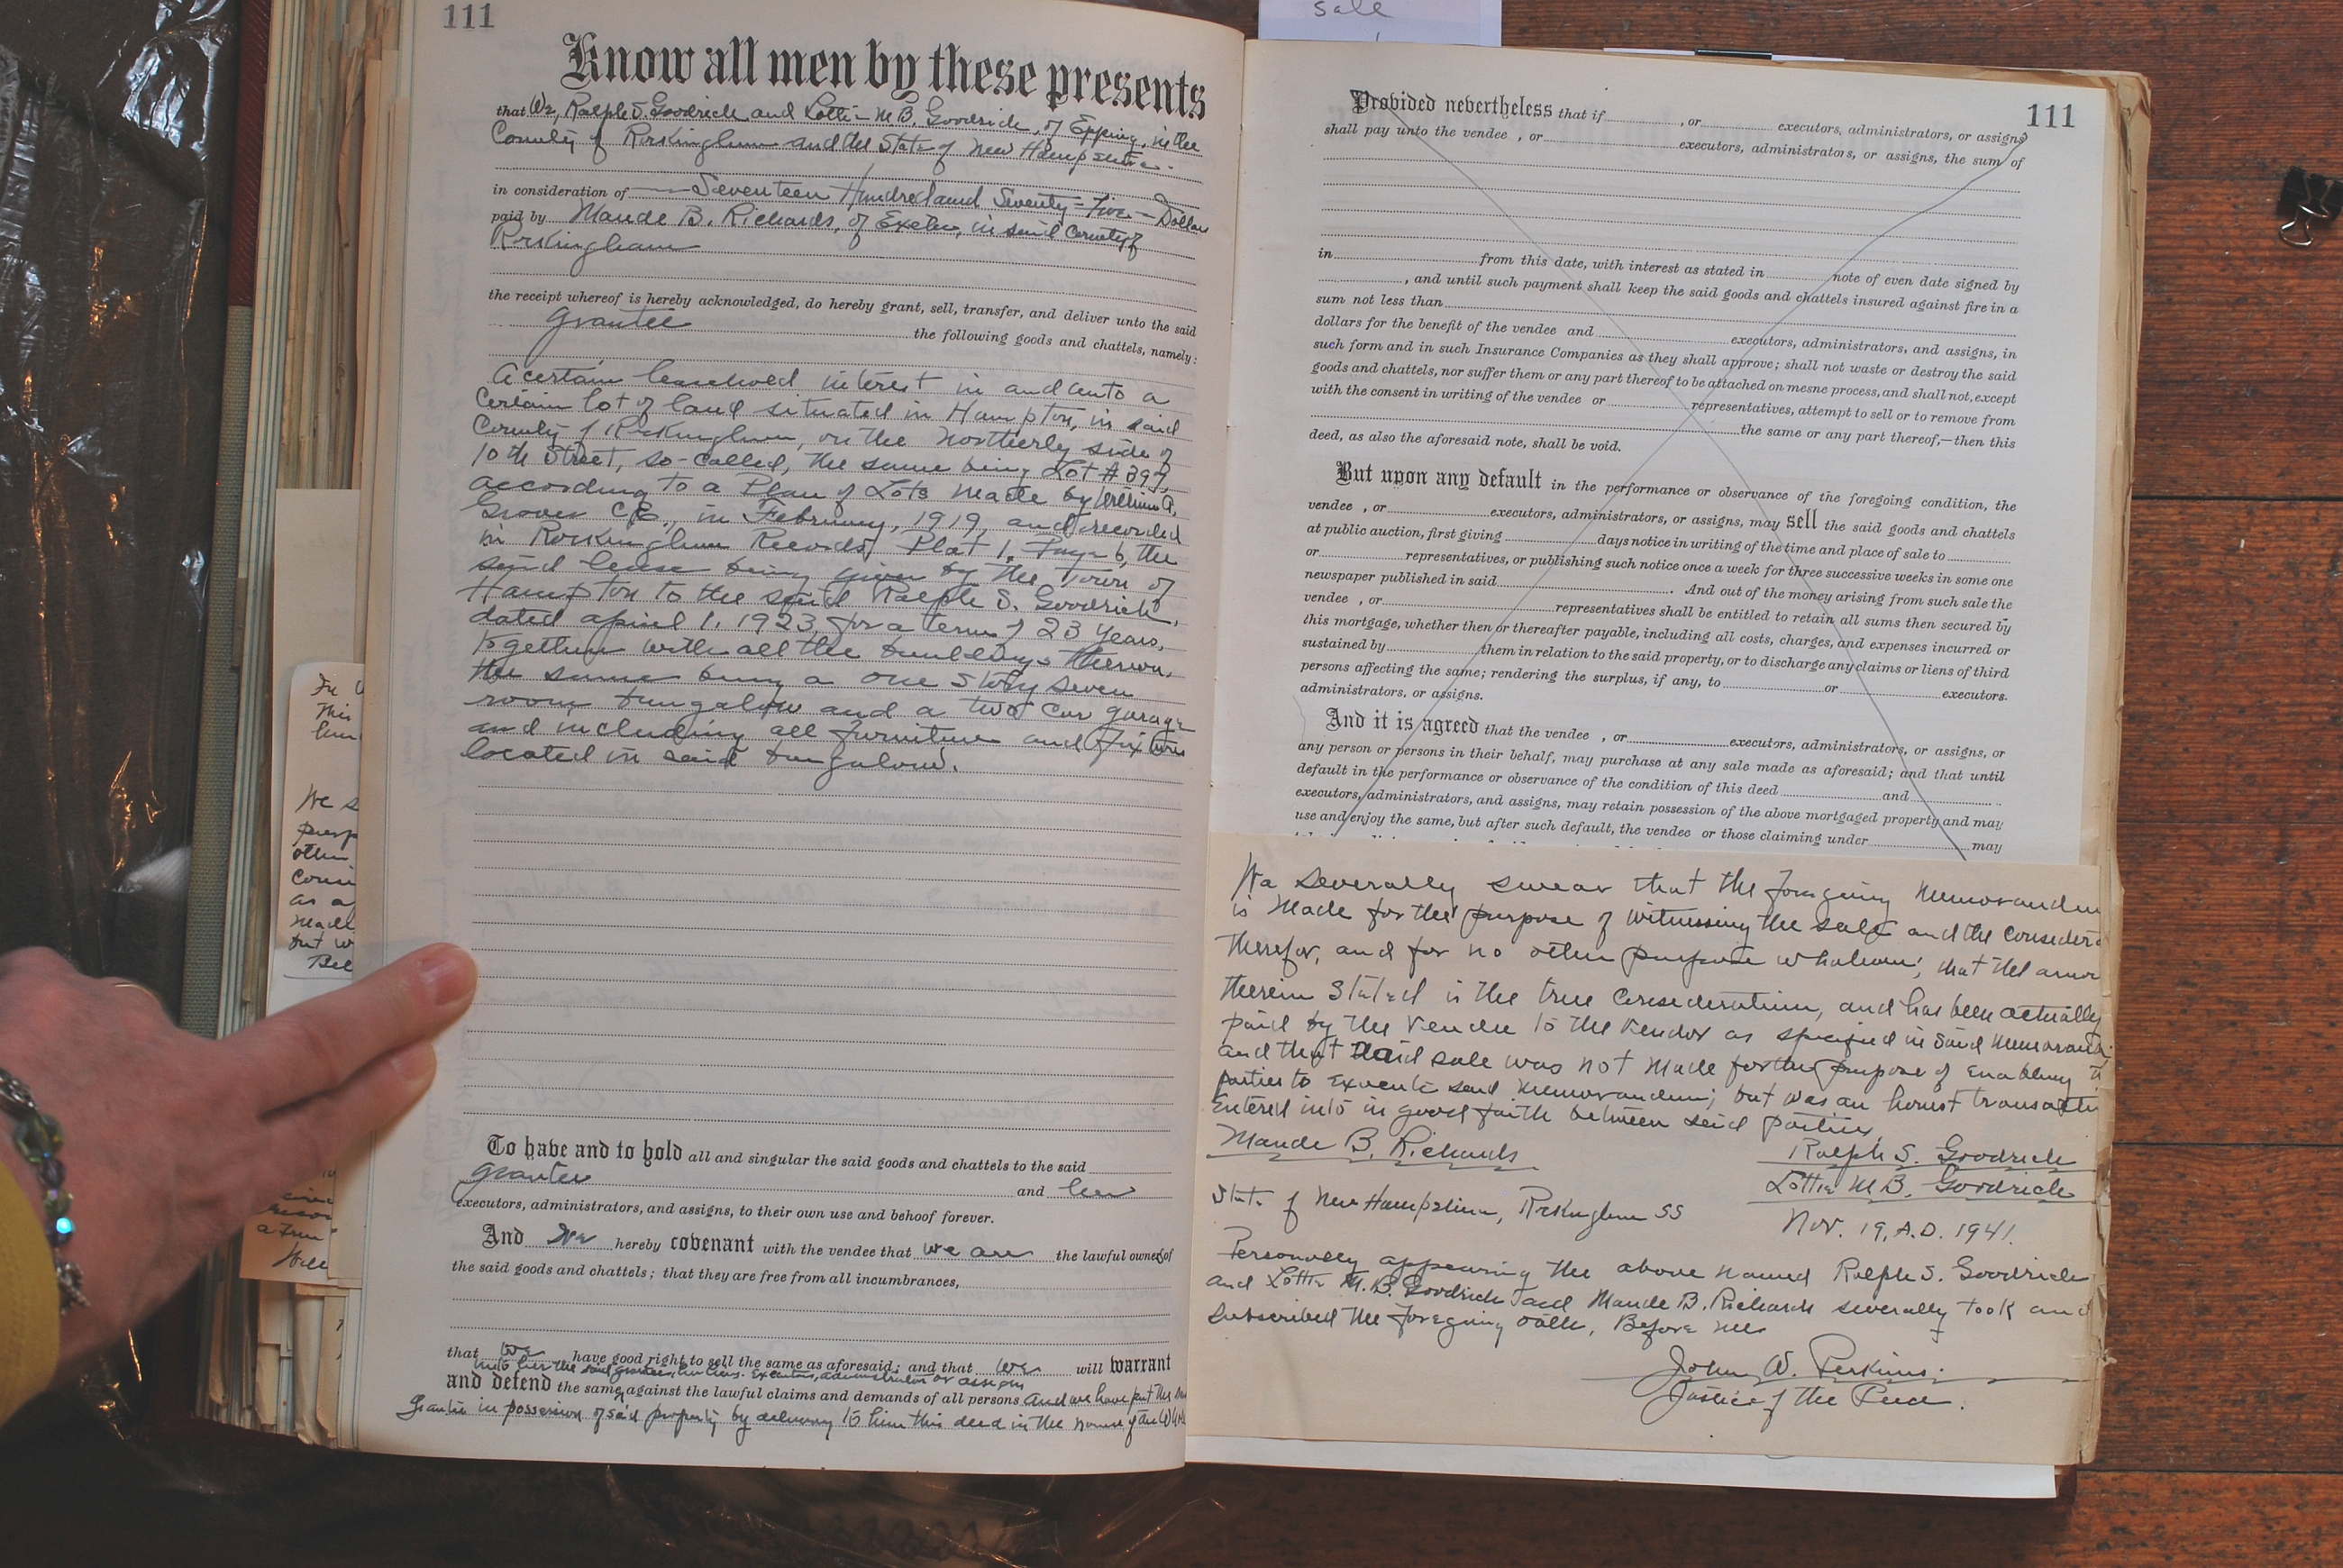 111
Know all men by these presents
that We, Ralph S. Goodrich and Lottie M.B. Goodrich, of Epping, in the
County of Rockingham and the State of New Hampshire.
in consideration of Seventeen Hundred and Seventy-Five Dollars
paid by Maude B. Richards, of Exeter, in said County of
Rockingham
the receipt whereof is hereby acknowledged, do hereby grant, sell, transfer, and deliver unto the said
Grantee the following goods and chattels, namely:
A certain leasehold interest in and unto a
certain lot of land situated in Hampton, in said
County of Rockingham, on the Northerly side of
10th Street, so-called, the same being Lot # 397,
according to a Plan of Lots made by William A.
Grover C.E., in February, 1919, and recorded
in Rockingham Records, Plat 1, Page 6, the
said lease being given by the Town of
Hampton to the said Ralph S. Goodrich,
dated April 1, 1923, for a term of 23 years,
together with all the buildings thereon,
the same being a one story seven
room bungalow and a two car garage
and including all furniture and fixtures
located in said bungalow.
To have and to hold all and singular the said goods and chattels to the said
grantee and her
executors, administrators, and assigns, to their own use and behoof forever.
And we hereby covenant with the vendee that we are the lawful owners of
the said goods and chattels; that they are free from all incumbrances,
that we have good right to sell the same as aforesaid; and that we will warrant
unto her the said grantee, her heirs, executors, administrators or assigns
and defend the same against the lawful claims and demands of all persons and we have put the said
Grantee in possession of said property by delivery to him this deed in the name of the whole
sale
111
Provided nevertheless that if , or executors, administrators, or assigns
shall pay unto the vendee , or executors, administrators, or assigns, the sum of
in from this date, with interest as stated in note of even date signed by
, and until such payment shall keep the said goods and chattels insured against fire in a
sum not less than
dollars for the benefit of the vendee and executors, administrators, and assigns, in
such form and in such Insurance Companies as they shall approve; shall not waste or destroy the said
goods and chattels, nor suffer them or any part thereof to be attached on mesne process, and shall not, except
with the consent in writing of the vendee or representatives, attempt to sell or to remove from
the same or any part thereof,—then this
deed, as also the aforesaid note, shall be void.
But upon any default in the performance or observance of the foregoing condition, the
vendee , or executors, administrators, or assigns, may sell the said goods and chattels
at public auction, first giving days notice in writing of the time and place of sale to
or representatives, or publishing such notice once a week for three successive weeks in some one
newspaper published in said . And out of the money arising from such sale the
vendee , or representatives shall be entitled to retain all sums then secured by
this mortgage, whether then or thereafter payable, including all costs, charges, and expenses incurred or
sustained by them in relation to the said property, or to discharge any claims or liens of third
persons affecting the same; rendering the surplus, if any, to or executors.
administrators, or assigns.
And it is agreed that the vendee , or executors, administrators, or assigns, or
any person or persons in their behalf, may purchase at any sale made as aforesaid; and that until
default in the performance or observance of the condition of this deed and
executors, administrators, and assigns, may retain possession of the above mortgaged property and may
use and enjoy the same, but after such default, the vendee or those claiming under may
We severally swear that the foregoing memorandum
is made for the purpose of witnessing the sale and the consider
therefor, and for no other purpose whatever; that the amou
therein stated is the true consideration, and has been actually
paid by the vendee to the vendor as specified in said memorand
and that said sale was not made for the purpose of enabling
parties to execute said memorandum; but was an honest transactn
entered into in good faith between said parties.
Maude B. Richards
Ralph S. Goodrich
Lottie M.B. Goodrich
State of New Hampshire, Rockingham SS
Nov. 19, A.D. 1941.
Personally appearing the above named Ralph S. Goodrich
and Lottie M.B. Goodrich and Maude B. Richards severally took and
subscribed the foregoing oath, Before me
John W. Perkins.
Justice of the Peace.
We s
purp
other
Consi
as a
made
but w
Bel